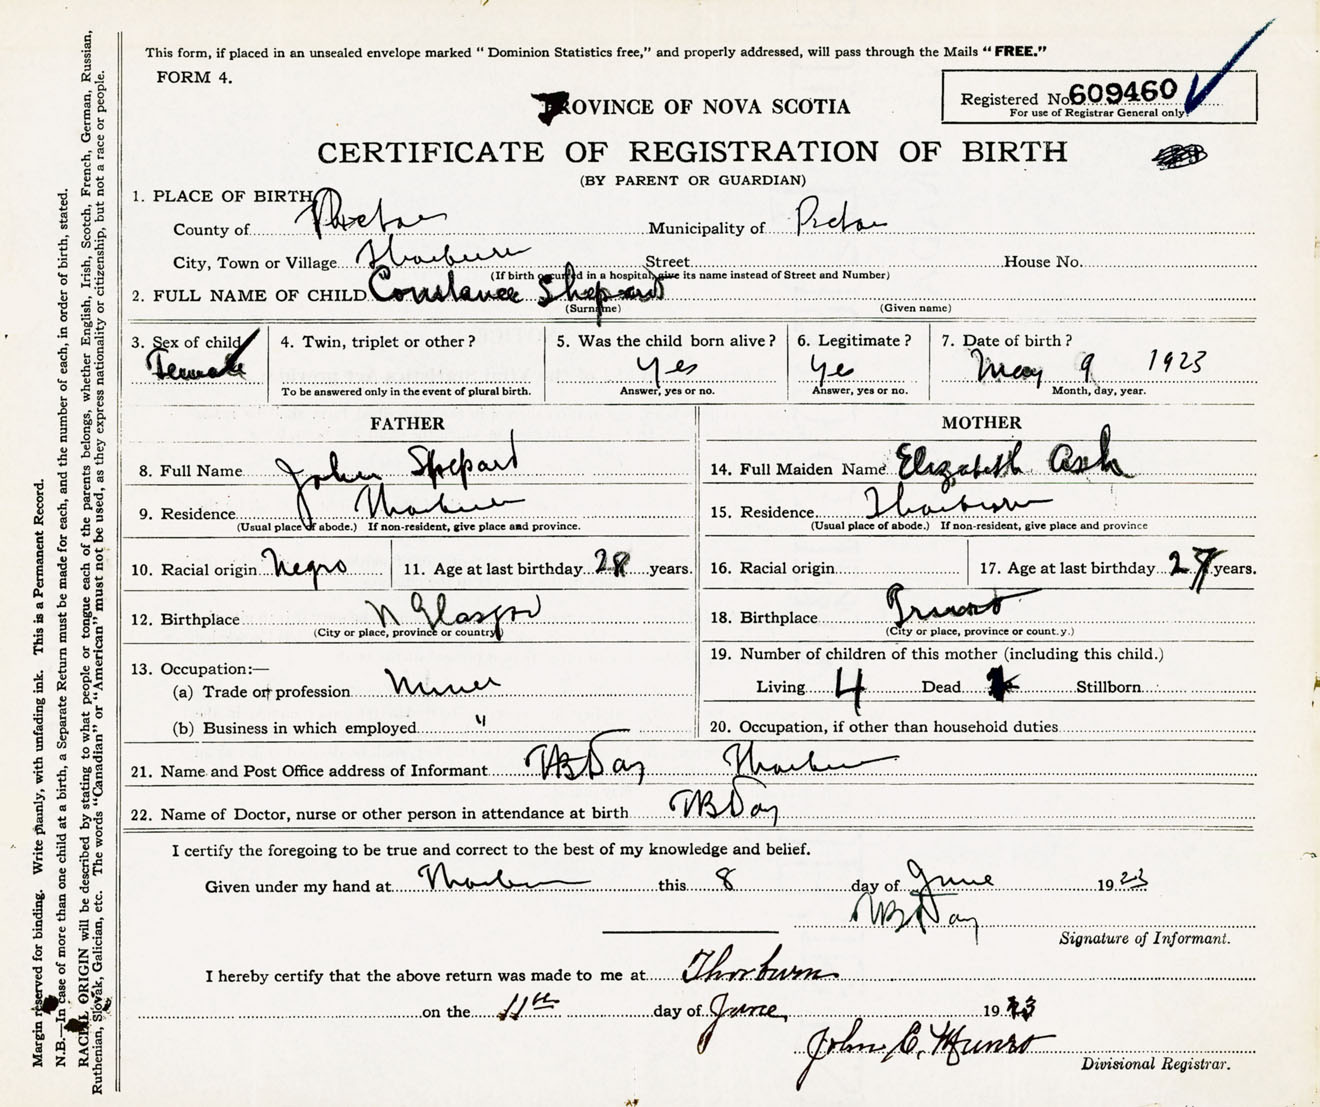 This form, if placed in an unsealed envelope marked “Dominion Statistics free,” and properly addressed, will pass through the Mails “FREE.”
FORM 4.
PROVINCE OF NOVA SCOTIA
Registered No. 609460
For use of Registrar General only.
CERTIFICATE OF REGISTRATION OF BIRTH
(BY PARENT OR GUARDIAN)
1. PLACE OF BIRTH
County of Pictou Municipality of Pictou
City, Town or Village Thorburn Street House No.
(If birth occurred in a hospital, give its name instead of Street and Number)
2. FULL NAME OF CHILD Constance Shepard
(Surname) (Given name)
3. Sex of child 4. Twin, triplet or other? 5. Was the child born alive? 6. Legitimate? 7. Date of birth?
Female yes yes May 9 1923
To be answered only in the event of plural birth. Answer, yes or no. Answer, yes or no. Month, day, year.
FATHER MOTHER
8. Full Name John Shepard 14. Full Maiden Name Elizabeth Ash
9. Residence Thorburn 15. Residence Thorburn
(Usual place of abode.) If non-resident, give place and province. (Usual place of abode.) If non-resident, give place and province
10. Racial origin Negro 11. Age at last birthday 28 years. 16. Racial origin 17. Age at last birthday 27 years.
12. Birthplace N Glasgow 18. Birthplace
(City or place, province or country) (City or place, province or country.)
19. Number of children of this mother (including this child.)
13. Occupation:—
(a) Trade or profession Miner Living 4 Dead Stillborn
(b) Business in which employed " 20. Occupation, if other than household duties
21. Name and Post Office address of Informant WB Day Thorburn
22. Name of Doctor, nurse or other person in attendance at birth WB Day
I certify the foregoing to be true and correct to the best of my knowledge and belief.
Given under my hand at Thorburn this 8 day of June 1923
WB Day
Signature of Informant.
I hereby certify that the above return was made to me at Thorburn
on the 11th day of June 1923
John C. Munro
Divisional Registrar.
Margin reserved for binding. Write plainly, with unfading ink. This is a Permanent Record.
N.B.—In case of more than one child at a birth, a Separate Return must be made for each, and the number of each, in order of birth, stated.
RACIAL ORIGIN will be described by stating to what people or tongue each of the parents belongs, whether English, Irish, Scotch, French, German, Russian,
Ruthenian, Slovak, Galician, etc. The words “Canadian” or “American” must not be used, as they express nationality or citizenship, but not a race or people.